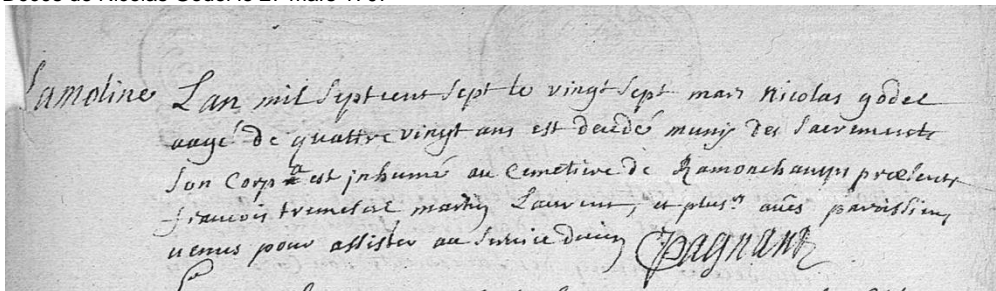 Lamoline
Lan mil sept cent sept le vingt sept mars Nicolas godel
aagé de quattre vingt ans est decedé muny des sacrements
son corp est inhumé au cemetiere de Ramonchamps præsents
francois martin Laurent, et plusrs aues paroissiens
venus pour assister au service divin CPagnant